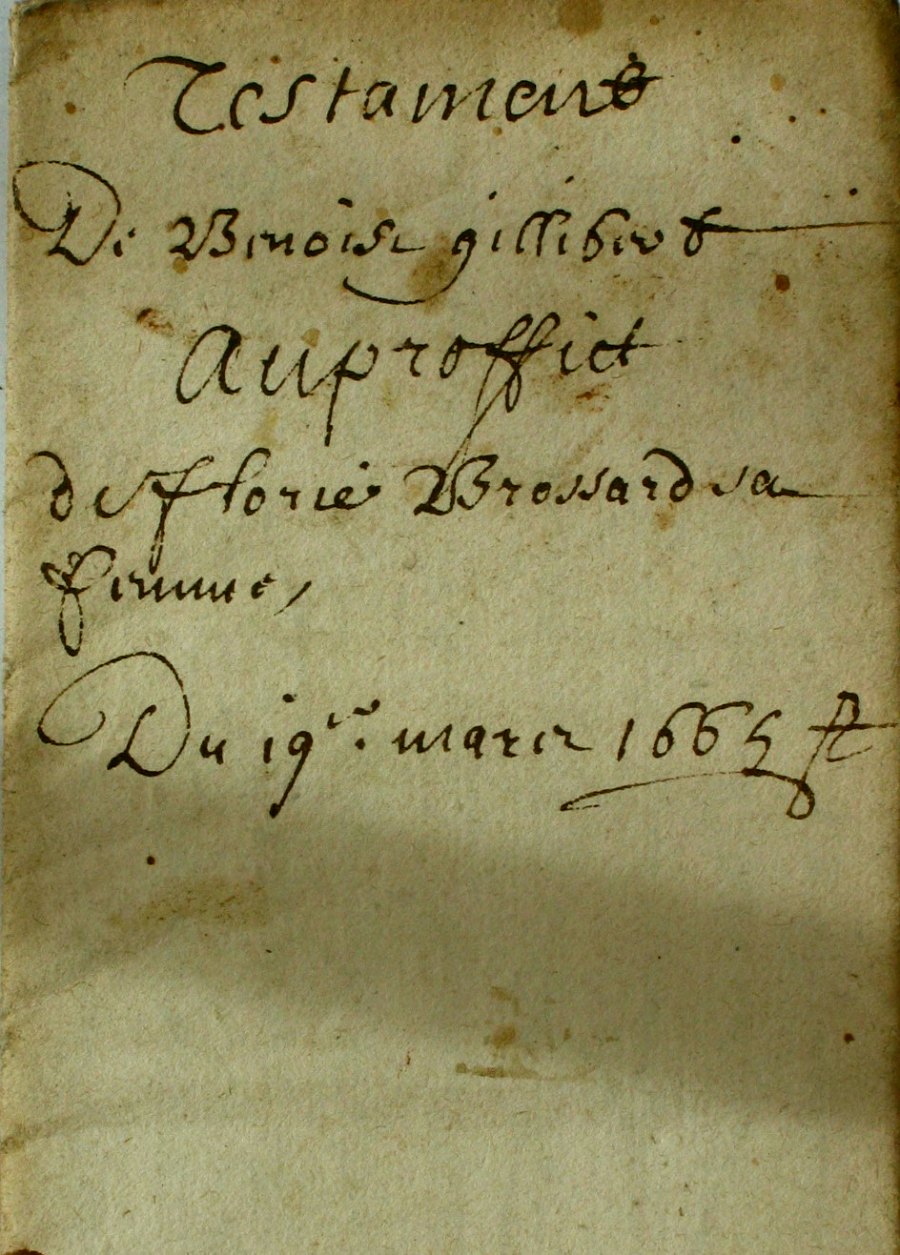 Testament
De Benoist gillibert
Au proffict
de florie Brossard sa
femme,
Du 19e. mars 1665